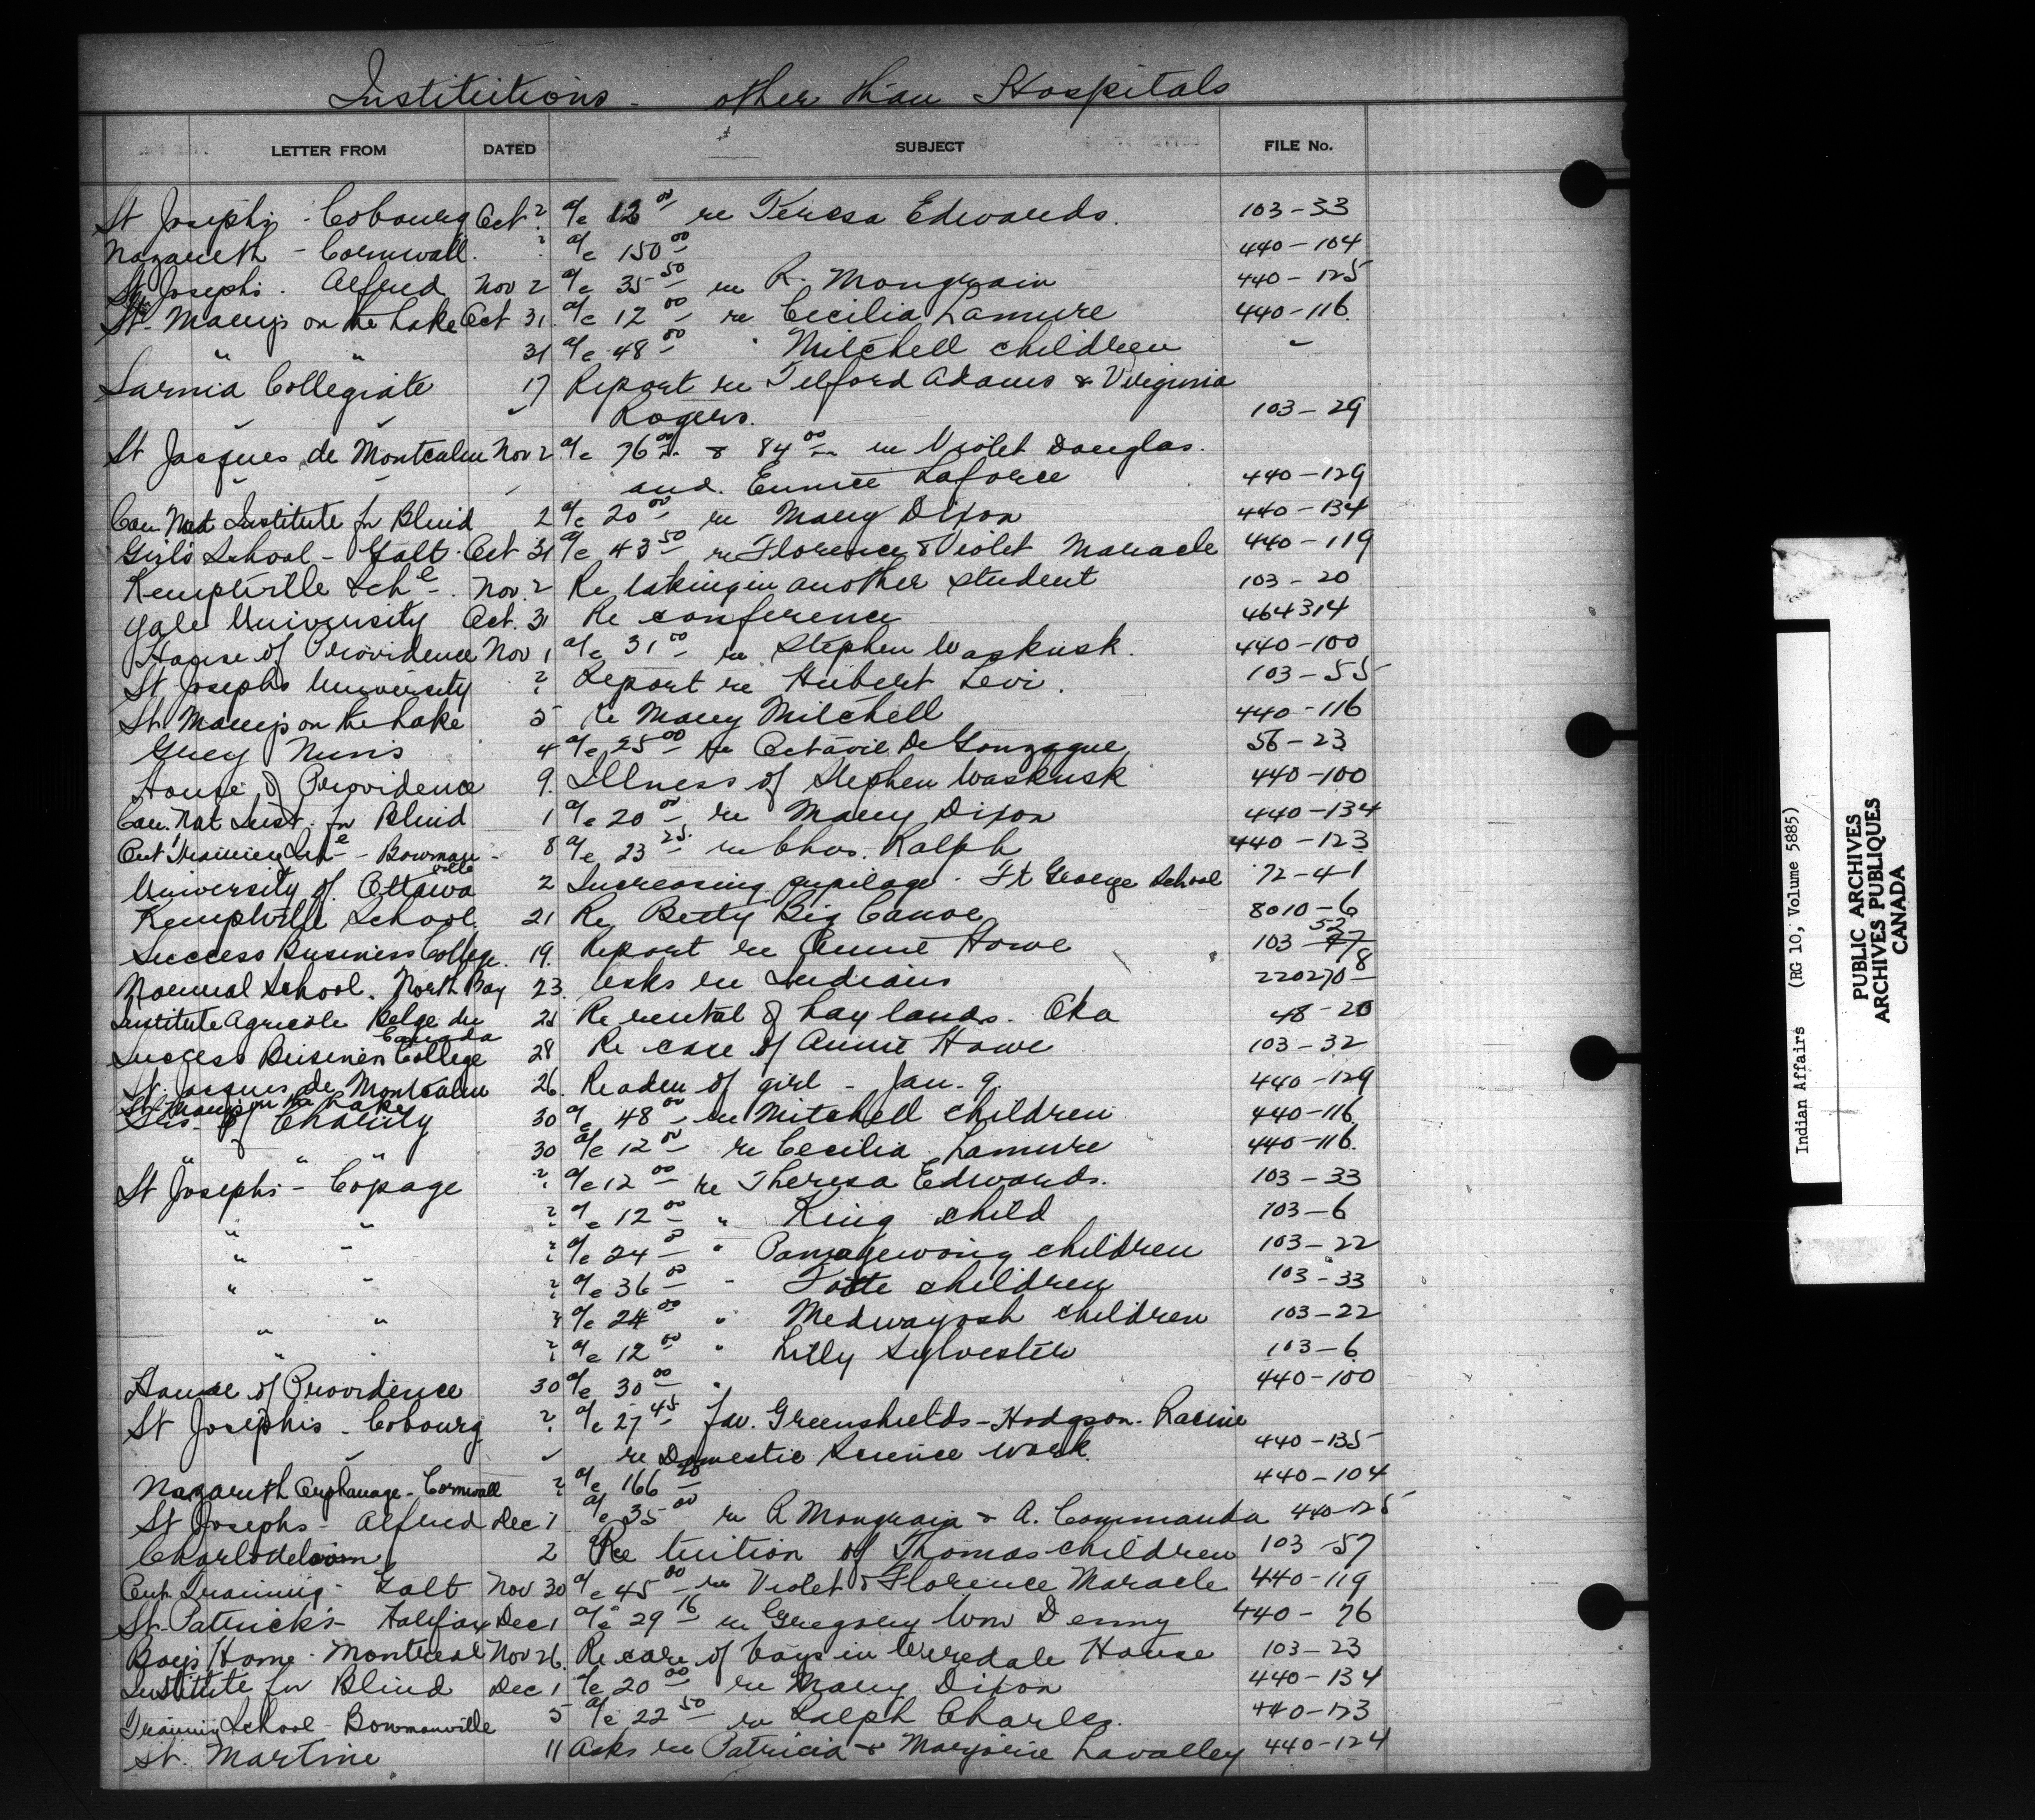 Institutions - other than Hospitals
LETTER FROM DATED SUBJECT FILE No.
St Joseph's - Cobourg Oct ? a/c 12 00 re Teresa Edwards. 103-33
Nazareth - Cornwall. ? a/c 150 00 440-104
St Joseph's. Alfred Nov 2 a/c 35 50 re R. Mongrain 440-125
St. Mary's on the Lake Oct 31. a/c 12 00 re Cecilia Lamure 440-116.
" " 31 a/c 48 00 " Mitchell children "
Sarnia Collegiate 17 Report re Telford Adams & Virginia
Rogers. 103-29
St Jacques de Montcalm Nov 2 a/c 76 00 & 84 00 re Violet Douglas.
and. Eunice Laforce 440-129
Can Nat Institute for Blind 2 a/c 20 00 re Mary Dixon 440-134
Girls School - Galt. Oct 31 a/c 43 50 re Florence & Violet Maracle 440-119
Kemptville Schl. Nov. 2 Re taking in another student 103-20
Yale University Oct. 31 Re conference 464314
House of Providence Nov 1 a/c 31 00 re Stephen Waskusk. 440-100
St Josephs University ? Report re Hubert Levi. 103-55
St. Mary's on the Lake 5 Re Mary Mitchell 440-116
Grey Nuns 4 a/c 25 00 re Octavie De Gonzague 56-23
House of Providence 9. Illness of Stephen Waskusk 440-100
Can. Nat Inst. for Blind 1 a/c 20 00 re Mary Dixon 440-134
Ont Training Sch - Bowman- 8 a/c 23 25 re Chas. Ralph 440-123
ville
University of Ottawa 2 Increasing pupilage - Ft George School 72-4-1
Kemptville School 21 Re Betty Big Canoe 8010-6
Success Business College. 19. Report re Annie Howe 103-47 52
Normal School. North Bay 23. Asks re Indians 220270-8
Institute Agricole Belge du 25 Re rental of hay lands. Oka 48-20
Canada
Success Business College 28 Re case of Annie Howe 103-32
St. Jacques de Montcalm 26. Re adm of girl - Jan. 9. 440-129
St. Mary's on the Lake
Srs. of Charity 30 a/c 48 00 re Mitchell children 440-116
" " " 30 a/c 12 00 re Cecilia Lamure 440-116.
St Joseph's - Copage ? a/c 12 00 re Theresa Edwards. 103-33
" " ? a/c 12 00 " King child 103-6
" " ? a/c 24 00 " children 103-22
" " ? a/c 36 00 " children 103-33
" " ? a/c 24 00 " Medwayosh children 103-22
" " ? a/c 12 00 " Lilly Sylvester 103-6
House of Providence 30 a/c 30 00 " 440-100
St Joseph's - Cobourg ? a/c 27 45 fav. Greenshields-Hodgson-Racine
re Domestic Science work. 440-135
Nazareth Orphanage - Cornwall ? a/c 166 20 440-104
St Josephs - Alfred Dec 1 a/c 35 00 re R Mongrain & A. Commanda 440-125
2 Re tuition of Thomas children 103-57
Ont Training - Galt Nov 30 a/c 45 00 re Violet & Florence Maracle 440-119
St. Patrick's - Halifax Dec 1 a/c 29 16 re Gregory Wm Denny 440-76
Boy's Home - Montreal Nov 26. Re care of boys in Weredale House 103-23
Institute for Blind Dec 1 a/c 20 00 re Mary Dixon 440-134
Training School - Bowmanville 5 a/c 22 50 re Ralph Charles. 440-123
St. Martine 11 Asks re Patricia & Marjorie Lavalley 440-124
Indian Affairs (RG 10, Volume 5885)
PUBLIC ARCHIVES
ARCHIVES PUBLIQUES
CANADA